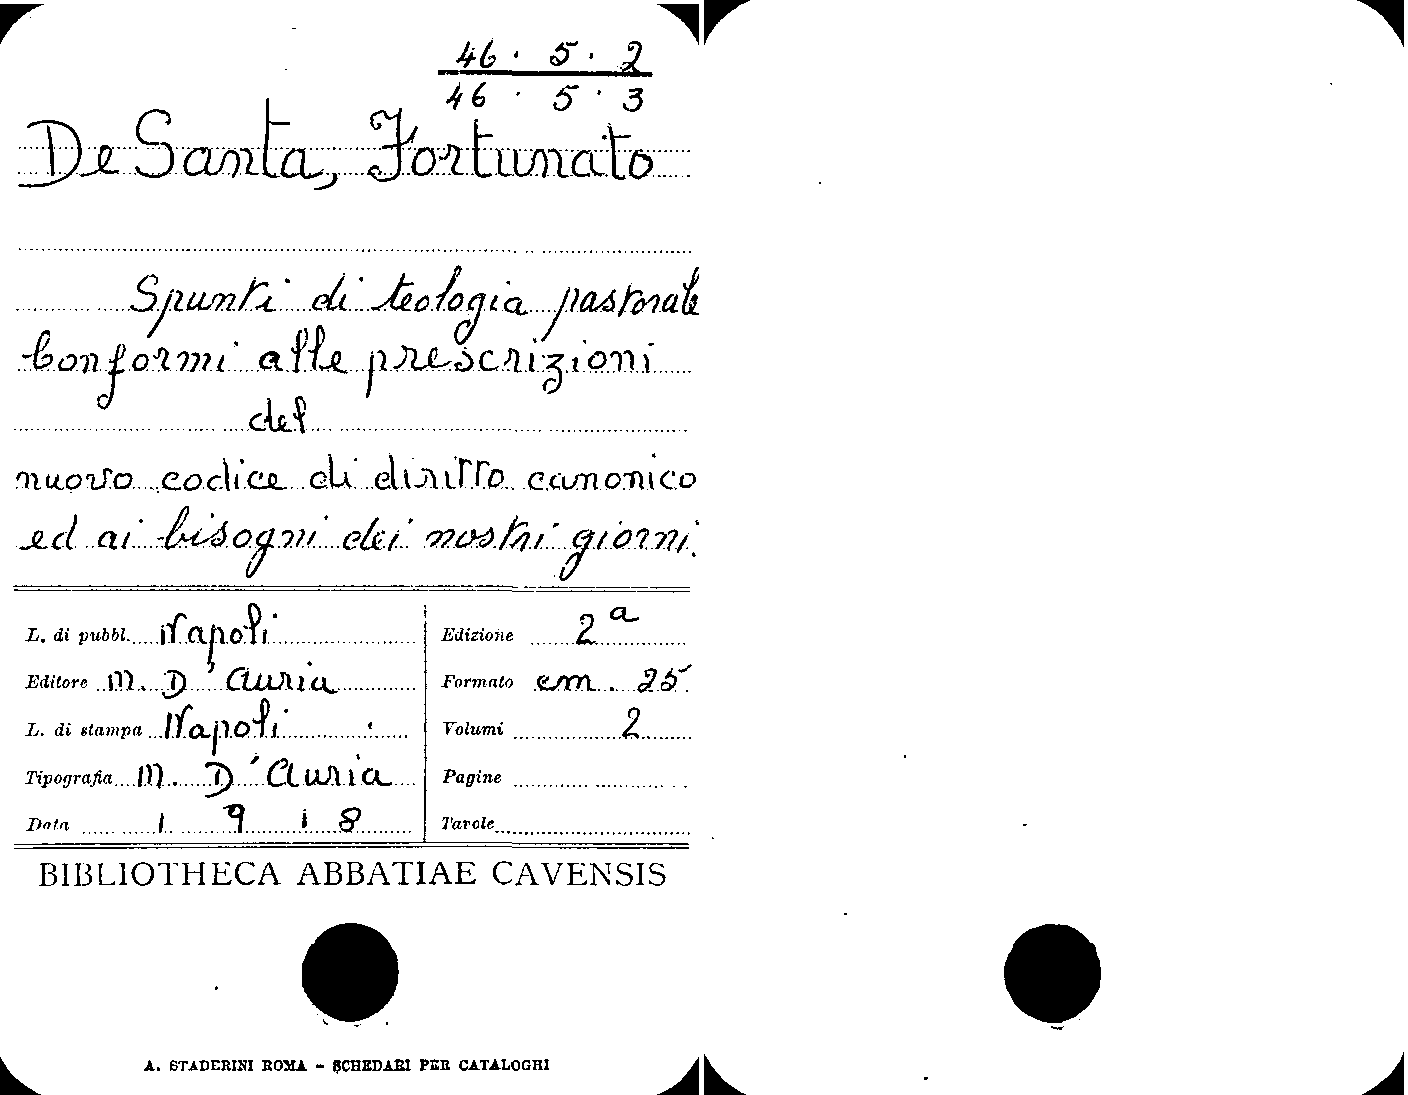 46 . 5 . 2
46 . 5 . 3
De Santa, Fortunato
Spunti di teologia pastorale
Conformi alle prescrizioni
del
nuovo codice di diritto canonico
ed ai bisogni dei nostri giorni.
L. di pubbl. Napoli
Editore M. D'Auria
L. di stampa Napoli
Tipografia M. D'Auria
Data 1918
Edizione 2a
Formato cm. 25
Volumi 2
Pagine
Tavole
BIBLIOTHECA ABBATIAE CAVENSIS
A. STADERINI ROMA - SCHEDARI PER CATALOGHI